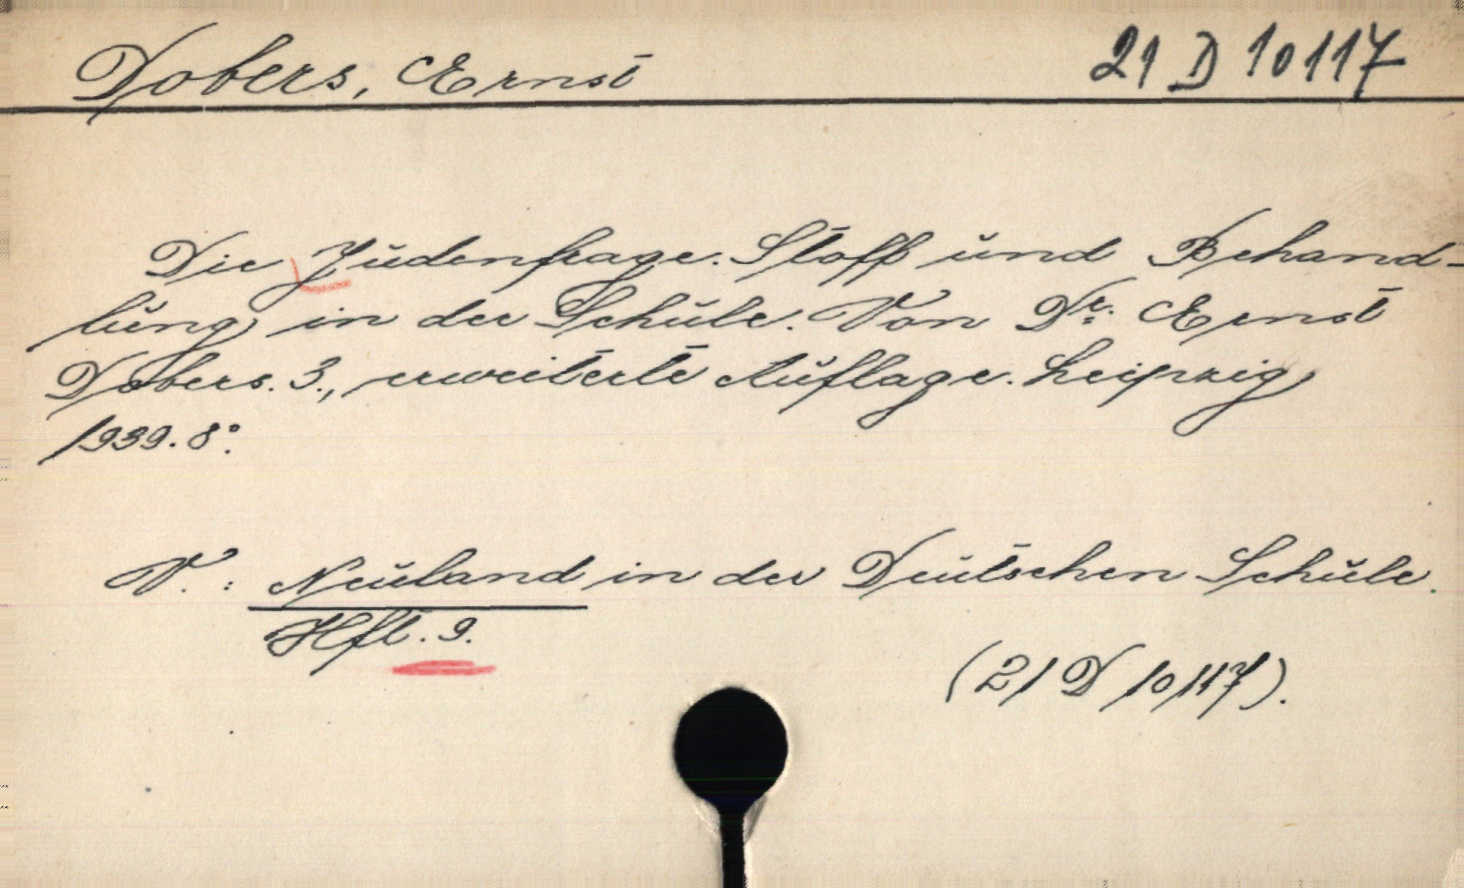 Dobers, Ernst 21 D 10117
Die Judenfrage. Stoff und Behand-
lung in der Schule. Von Dr. Ernst
Dobers. 3., erweiterte Auflage. Leipzig
1939. 8°.
V.: Neuland in der Deutschen Schule.
Hft. 9.
(21 D 10117).